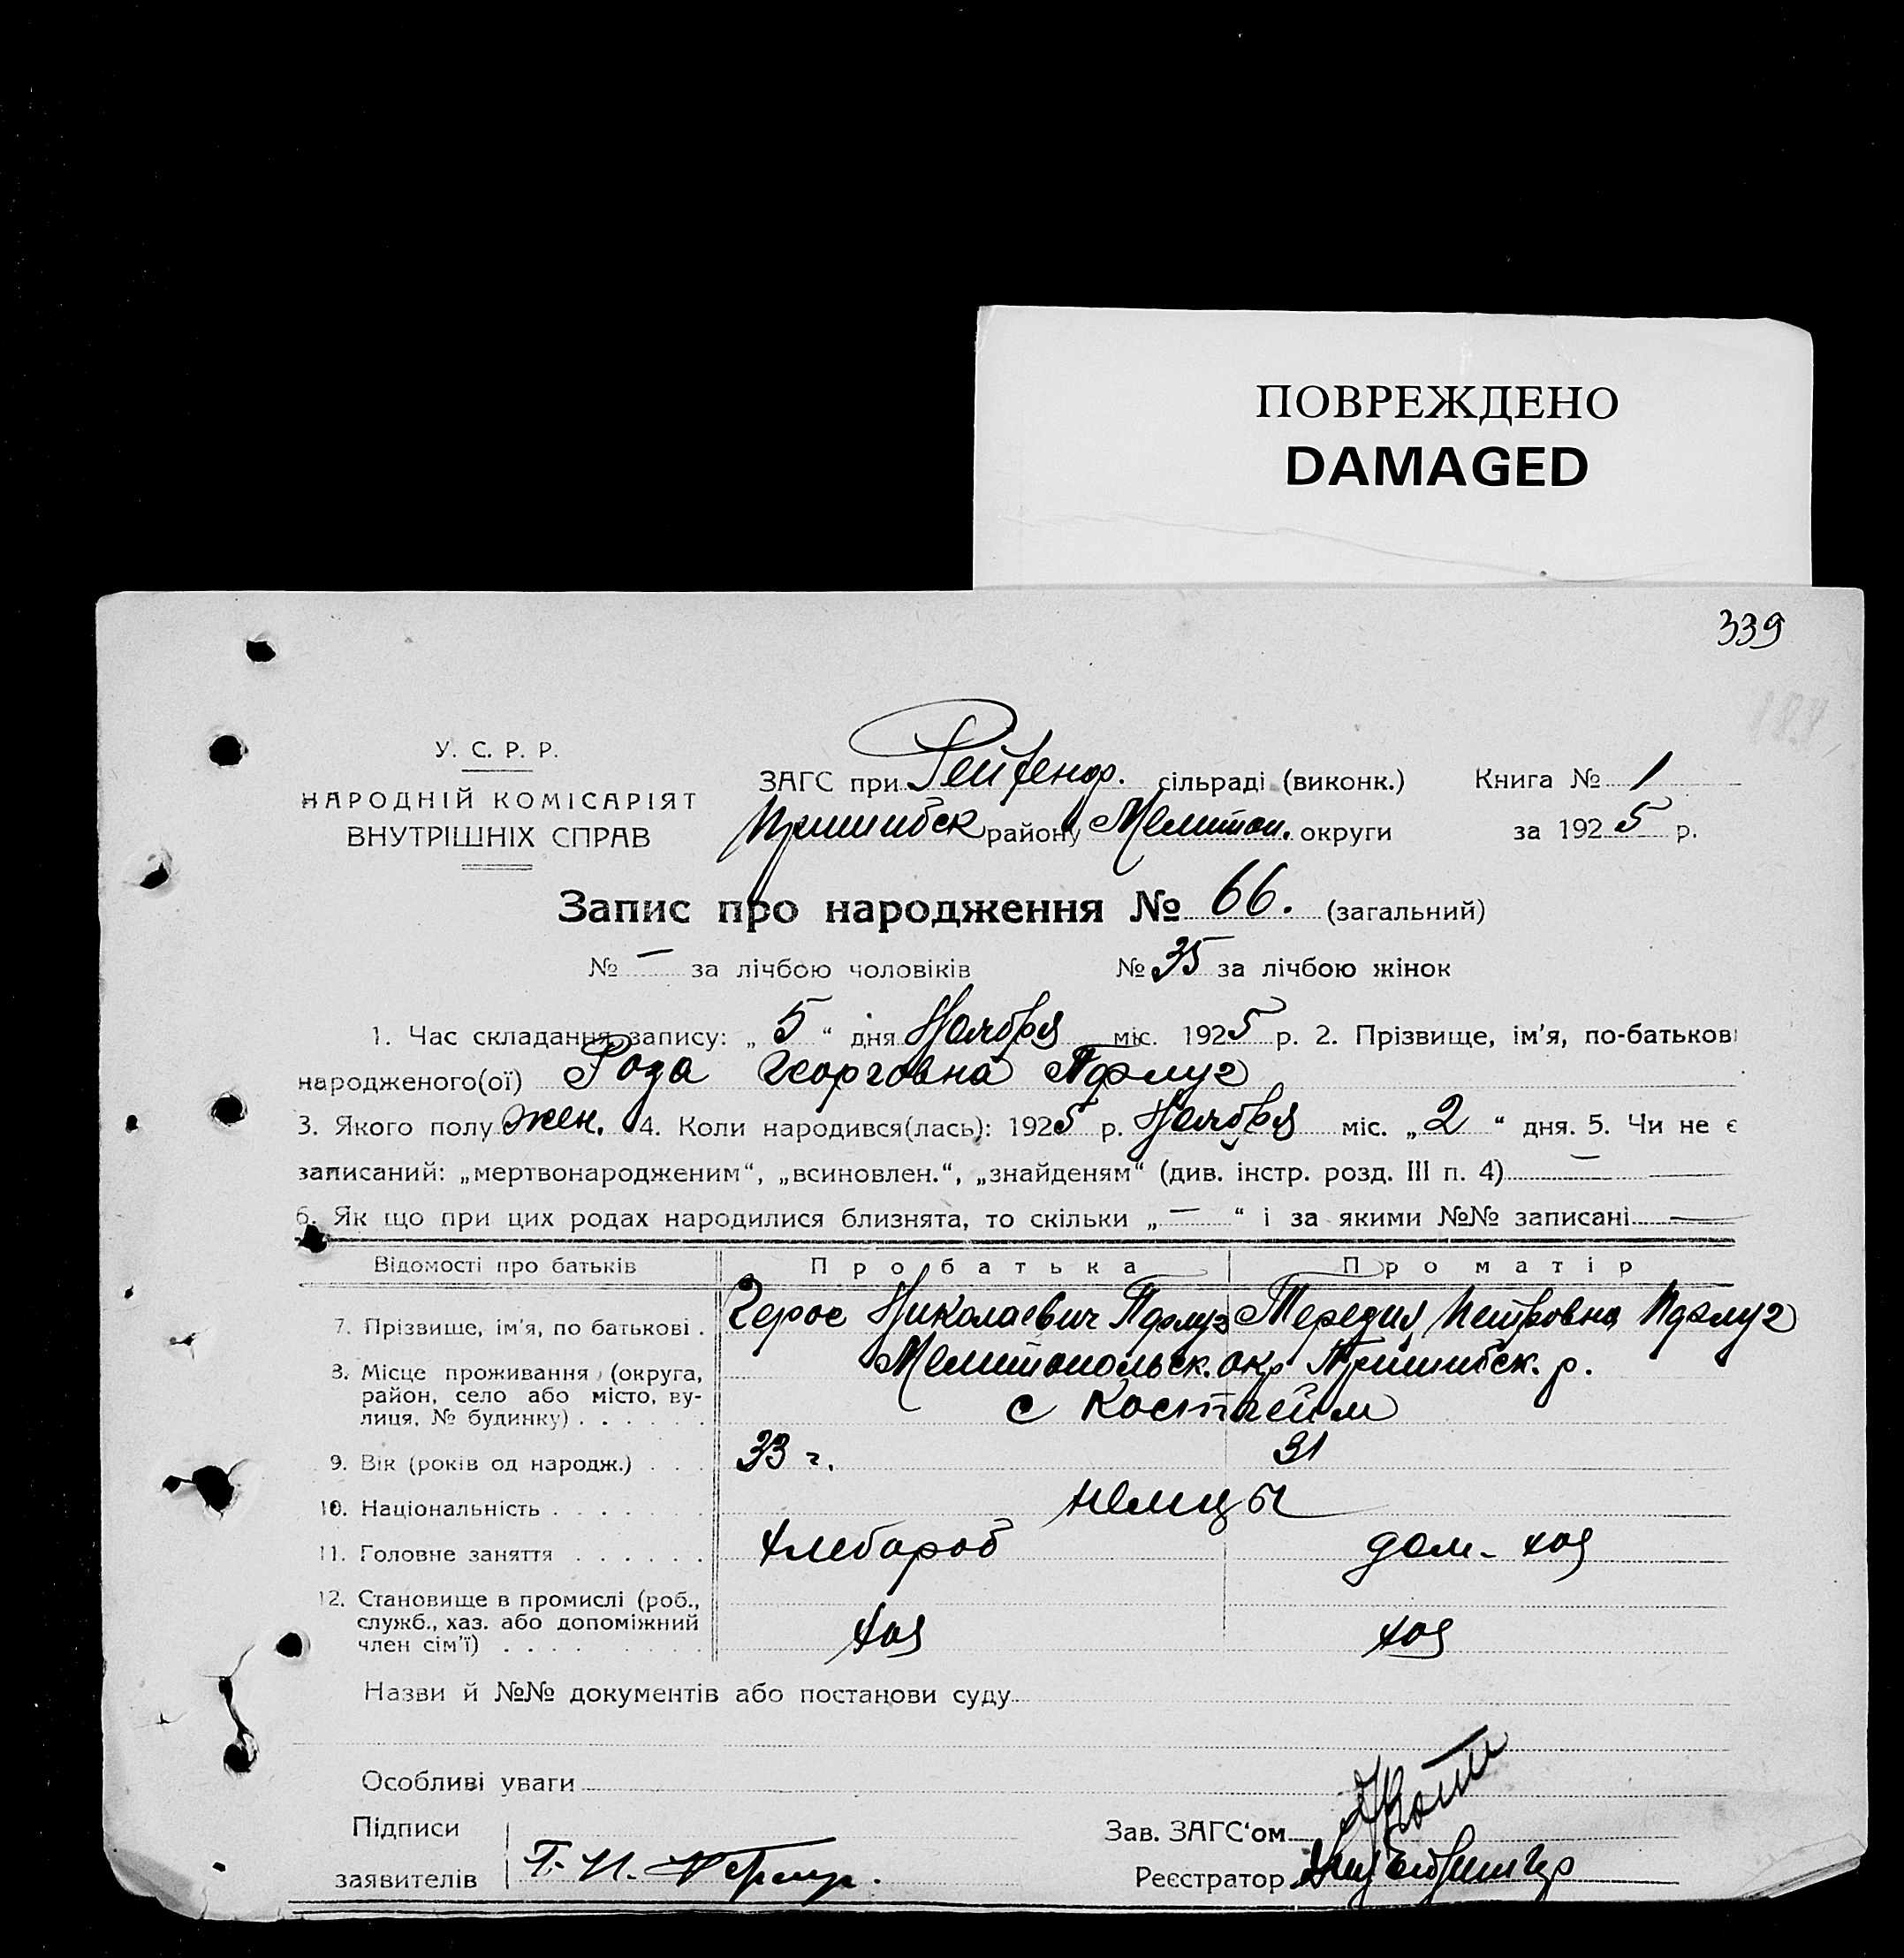 ПОВРЕЖДЕНО
DAMAGED
339
У. С. Р. Р.
НАРОДНІЙ КОМІСАРІЯТ
ВНУТРІШНІХ СПРАВ
ЗАГС при Рейхенф. сільраді (виконк.) Книга № 1
Пришибск району Мелитоп. округи за 1925 р.
Запис про народження № 66. (загальний)
№ — за лічбою чоловіків № 35 за лічбою жінок
1. Час складання запису: „ 5 “ дня Ноября міс. 1925 р. 2. Прізвище, ім'я, по-батькові
народженого(ої) Роза Георговна Пфлуг
3. Якого полу жен. 4. Коли народився(лась): 1925 р. Ноября міс. „ 2 “ дня. 5. Чи не є
записаний: „мертвонародженим“, „всиновлен.“, „знайденям“ (див. інстр. розд. III п. 4) —
6. Як що при цих родах народилися близнята, то скільки „ — “ і за якими №№ записані —
Відомості про батьків Про батька Про матір
7. Прізвище, ім'я, по батькові . Георг Николаевич Пфлуг Терезия Петровна Пфлуг
8. Місце проживання (округа, Мелитопольск. окр Пришибск. р.
район, село або місто, ву-
лиця, № будинку) . . . . . . с Костгейм
9. Вік (років од народж.) . . . 33 г. 31
10. Національність . . . . . . . немцы
11. Головне заняття . . . . . . хлебороб дом. хоз
12. Становище в промислі (роб.,
служб., хаз. або допоміжний
член сім'ї) . . . . хоз хоз
Назви й №№ документів або постанови суду
Особливі уваги
Підписи
Зав. ЗАГС'ом
заявителів Г. Н.
Реєстратор